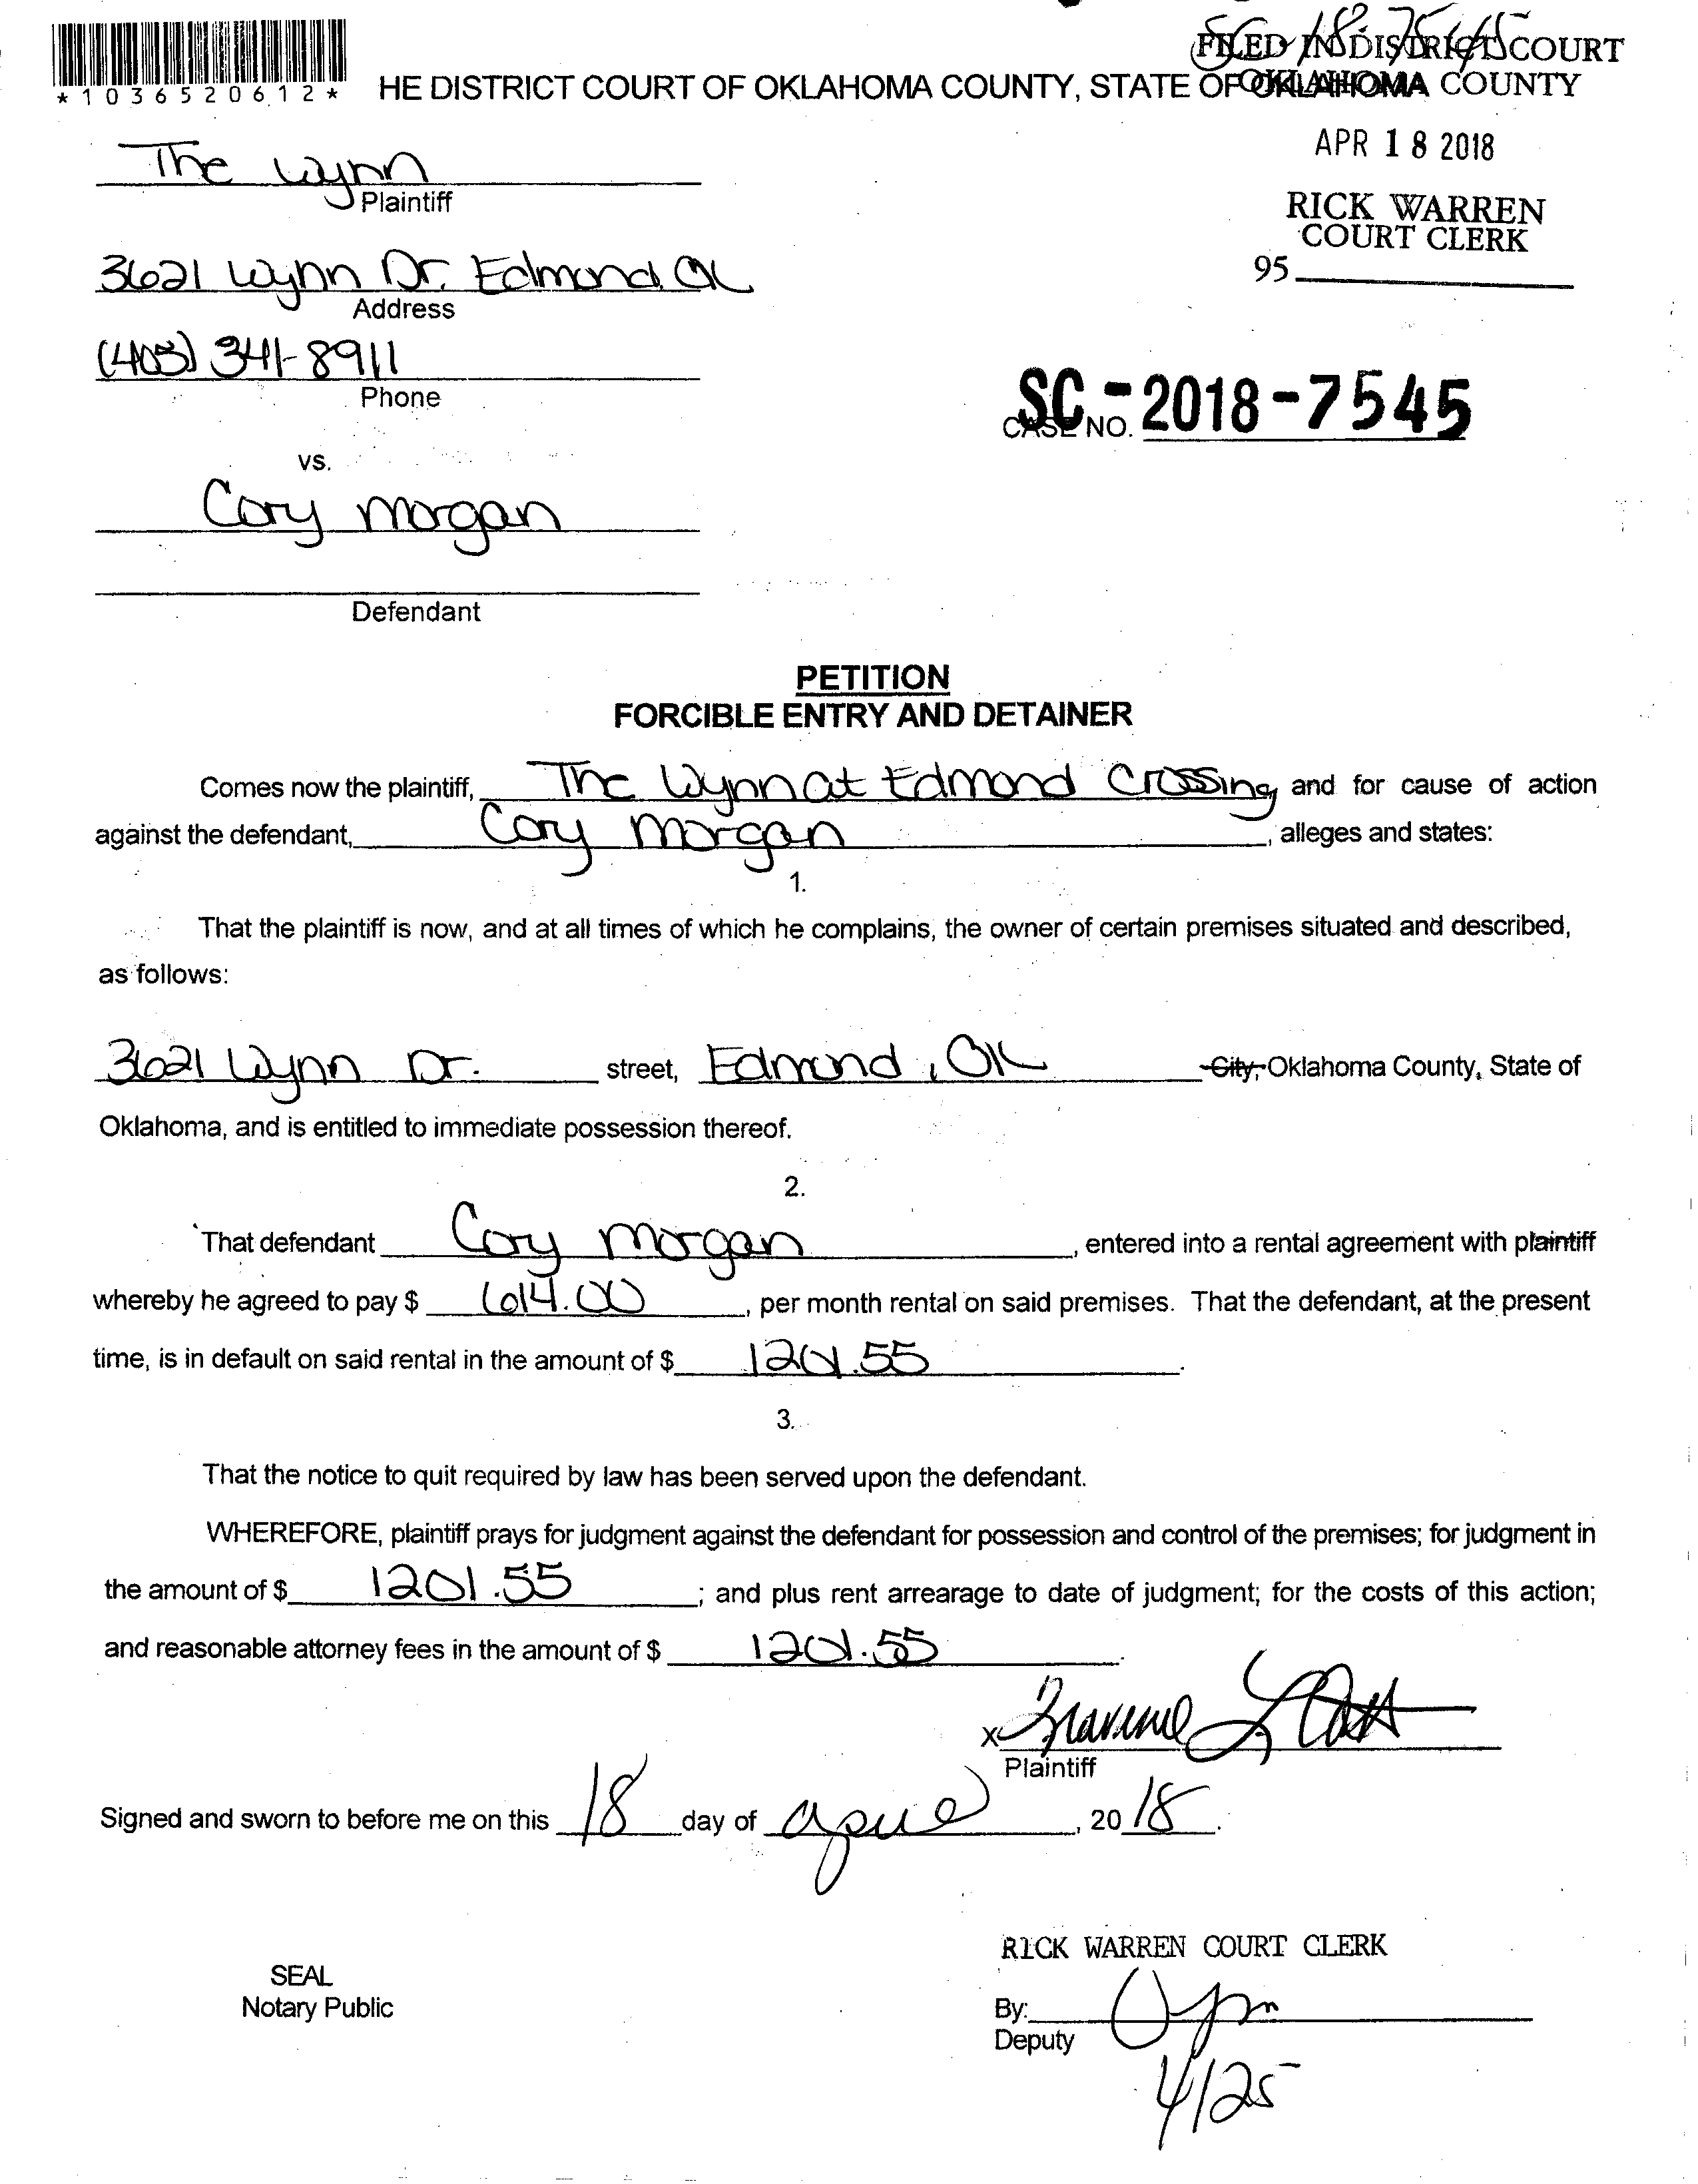 SC 18 7545
FILED IN DISTRICT COURT
*1036520612* HE DISTRICT COURT OF OKLAHOMA COUNTY, STATE OF OKLAHOMA
OKLAHOMA COUNTY
APR 18 2018
The Wynn
Plaintiff
RICK WARREN
COURT CLERK
3621 Wynn Dr. Edmond, OK
95
Address
(405) 341-8911
Phone
SC-2018-7545
CASE NO.
vs.
Cory Morgan
Defendant
PETITION
FORCIBLE ENTRY AND DETAINER
Comes now the plaintiff, The Wynn at Edmond Crossing and for cause of action
against the defendant, Cory Morgan, alleges and states:
1.
That the plaintiff is now, and at all times of which he complains, the owner of certain premises situated and described,
as follows:
3621 Wynn Dr. street, Edmond, OK City, Oklahoma County, State of
Oklahoma, and is entitled to immediate possession thereof.
2.
That defendant Cory Morgan, entered into a rental agreement with plaintiff
whereby he agreed to pay $ 614.00, per month rental on said premises. That the defendant, at the present
time, is in default on said rental in the amount of $ 1201.55.
3.
That the notice to quit required by law has been served upon the defendant.
WHEREFORE, plaintiff prays for judgment against the defendant for possession and control of the premises; for judgment in
the amount of $ 1201.55; and plus rent arrearage to date of judgment; for the costs of this action;
and reasonable attorney fees in the amount of $ 1201.55.
x
Plaintiff
Signed and sworn to before me on this 18 day of april, 2018.
RICK WARREN COURT CLERK
SEAL
Notary Public
By:
Deputy
4/25